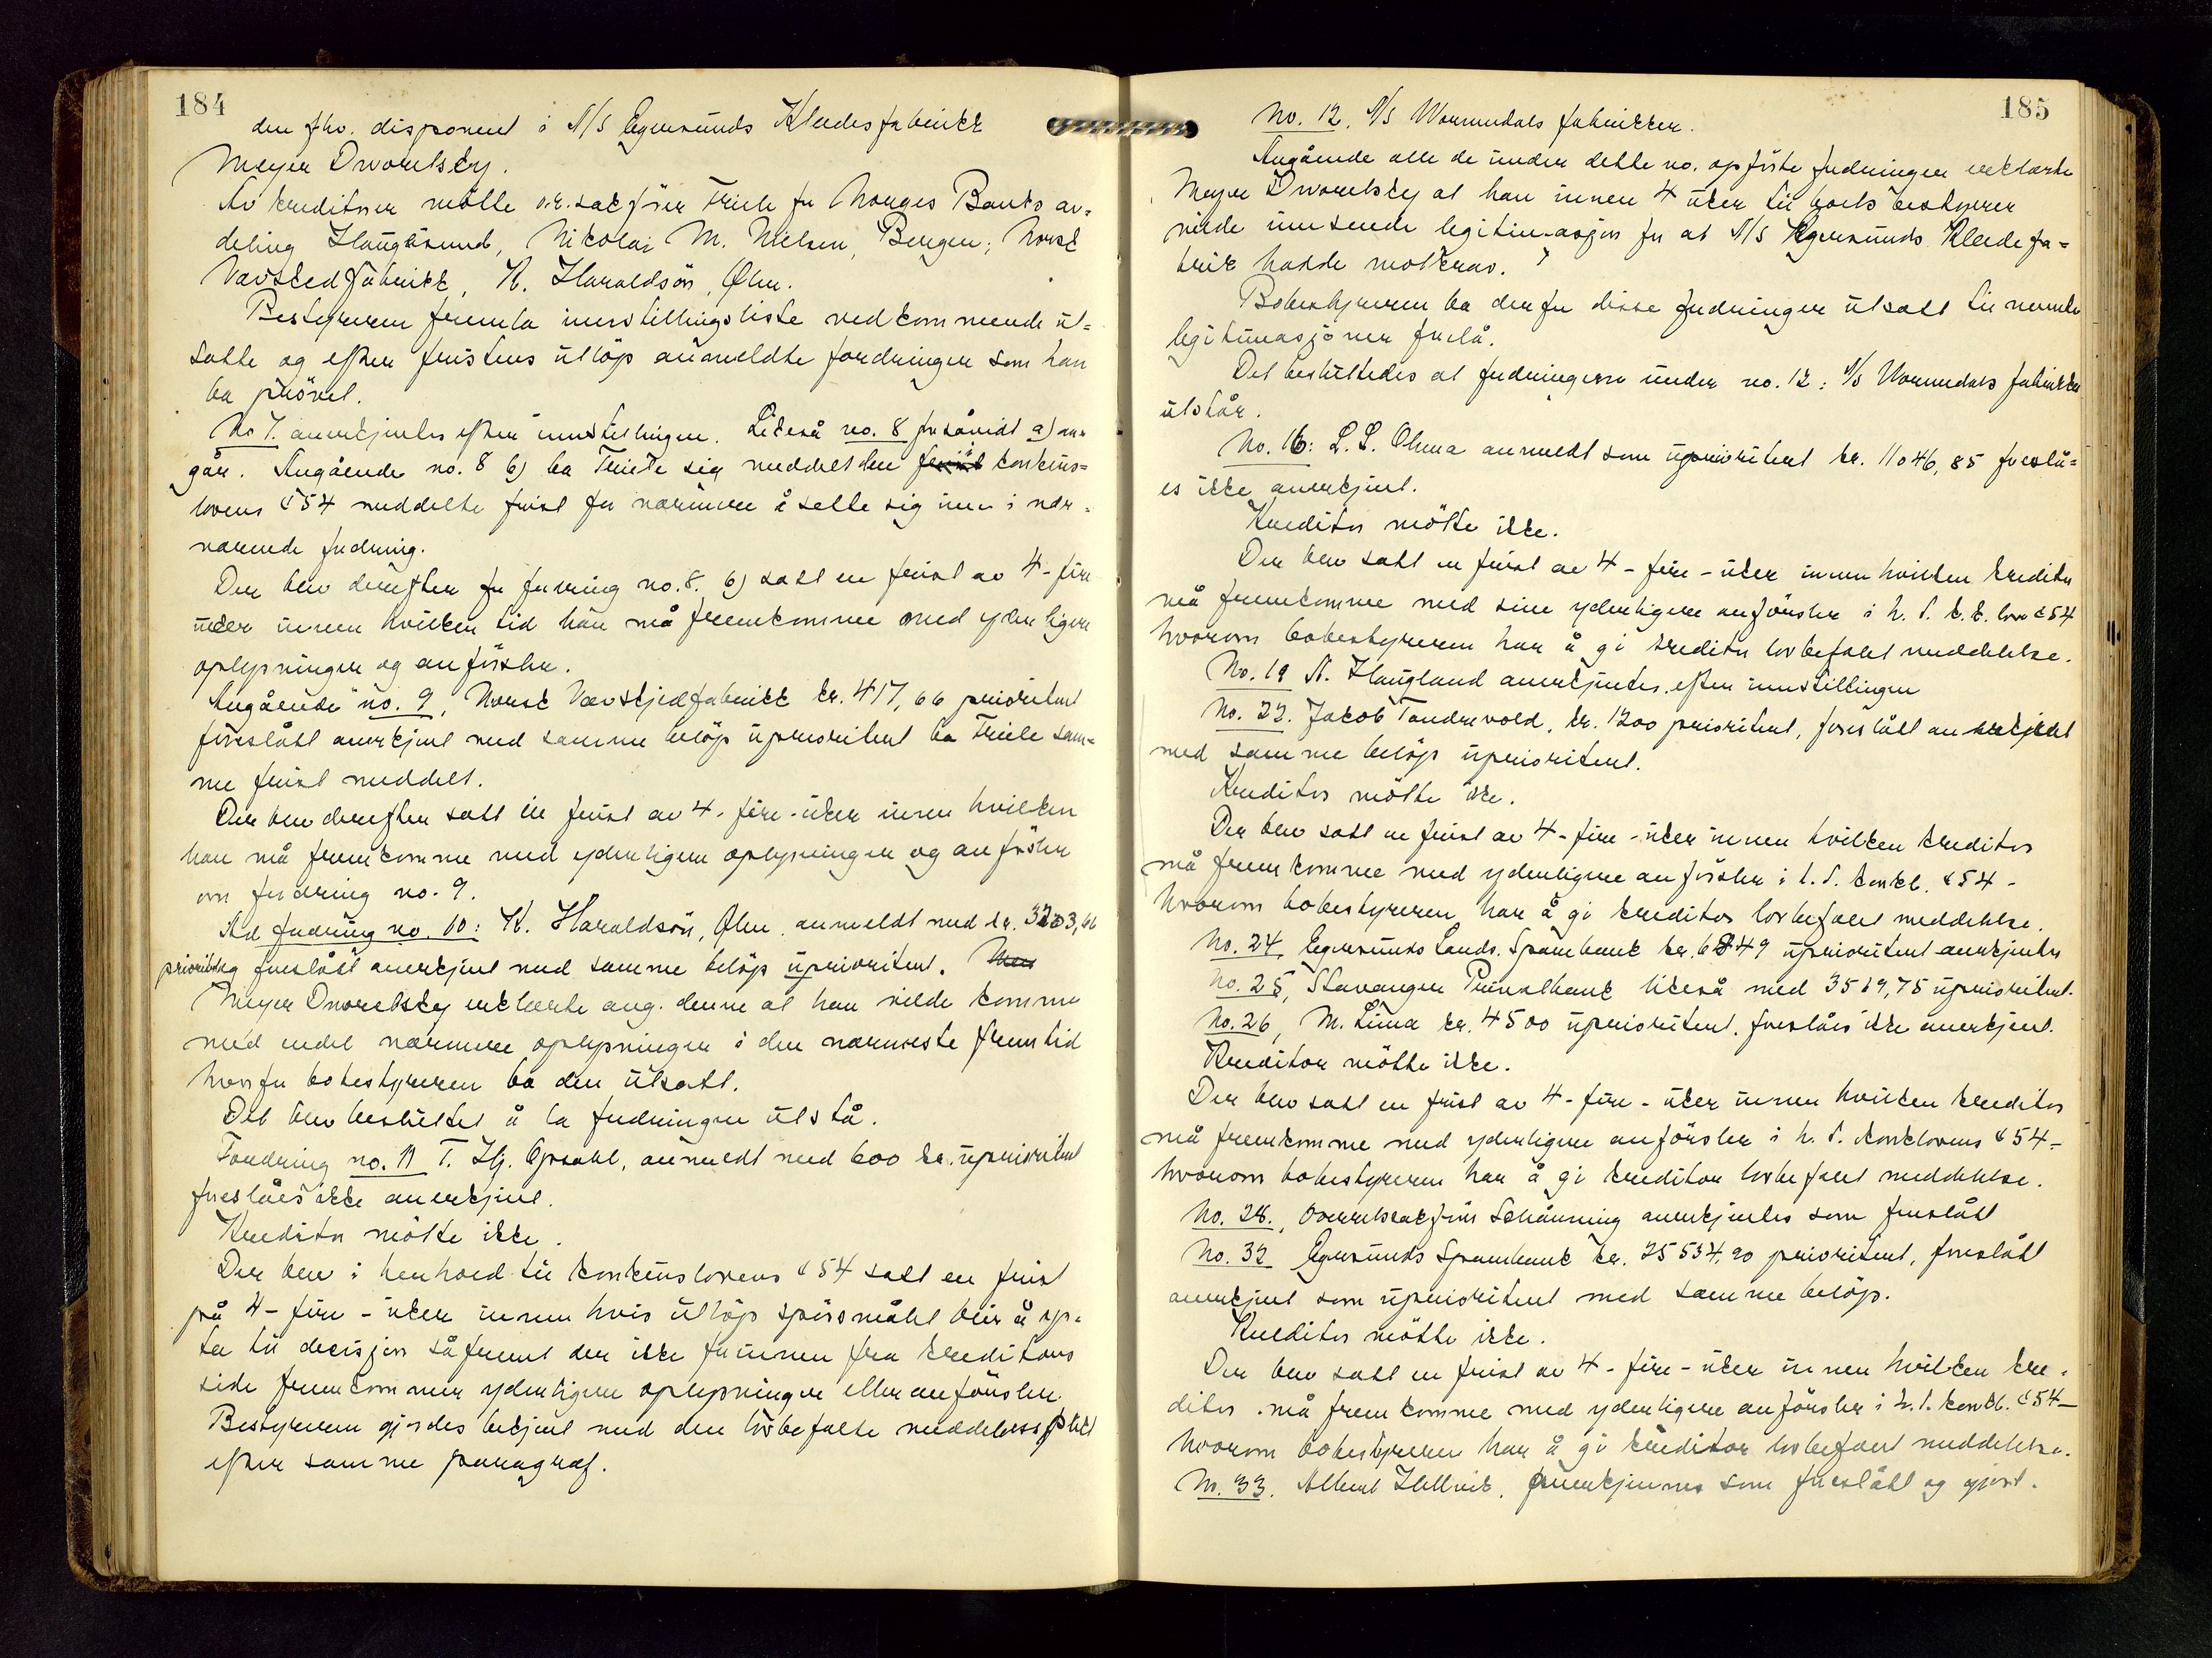 184
den fhv. disponent i A/S Egersunds Kledesfabrikk
Meyer Dworetsky.
Av kreditorer møtte o.r.sakfører Friele for Norges Banks av=
deling Haugesund, Nikolai M. Nielsen, Bergen; Norsk
Vævskedfabrikk, K. Haraldsön, Ølen.
Bestyreren fremla innstillingsliste vedkommende ut=
satte og efter fristens utlöp anmeldte fordringer som han
ba prövet.
No 7. anerkjentes efter innstillingen. Likeså no. 8 forsåvidt a) an=
går. Angående no. 8 b) ba Friele sig meddelt den konkurs=
lovens § 54 meddelte frist for nærmere å sette sig inn i nær=
værende fordring.
Der blev derefter for fordring no. 8. b) satt en frist av 4- fire
uker innen hvilken tid han må fremkomme med yderligere
oplysninger og anförsler.
Angående no. 9, Norsk Vævskjedfabrikk kr. 417,66 prioritert
foreslått anerkjent med samme belöp uprioritert ba Friele sam=
me frist meddelt.
Der blev derefter satt en frist av 4- fire- uker innen hvilken
han må fremkomme med yderligere oplysninger og anförsler
om fordring no. 9.
Ad fordring no. 10: K. Haraldsön, Ølen anmeldt med kr. 3203,66
prioritet og foreslått anerkjent med samme belöp uprioritert. Men
Meyer Dworetsky erklærte ang. denne at han vilde komme
med endel nærmere oplysninger i den nærmeste fremtid
hvorfor bobestyreren ba den utsatt.
Det blev besluttet å la fordringen utstå.
Fordring no. 11 T. Hj. Opsahl, anmeldt med 600 kr. uprioritert
foreslåes ikke anerkjent.
Kreditor møtte ikke.
Der blev i henhold til konkurslovens § 54 satt en frist
på 4- fire - uker innen hvis utlöp spörsmålet blir å op=
ta til decisjon såfremt der ikke forinnen fra kreditors
side fremkommer yderligere oplysninger eller anförsler.
Bestyreren gjordes bekjent med den lovbefalte meddelelsesplikt
efter samme paragraf.
185
No. 12, A/S Wormedals fabrikker.
Angående alle de under dette no. opförte fordringer erklærte
Meyer Dworetsky at han innen 4 uker til boets bestyrer
vilde innsende legitimasjon for at A/S Egersunds Kledefa=
brik hadde motkrav.
Bobestyreren ba derfor disse fordringer utsatt til nevnte
legitimasjoner forelå.
Det besluttedes at fordringerne under no. 12: A/S Wormedals fabrikker
utstår.
No. 16: L. L. Ohma anmeldt som uprioritert kr. 11046,85 foreslå=
es ikke anerkjent.
Kreditor mötte ikke.
Der blev satt en frist av 4 - fire - uker innen hvilken kreditor
må fremkomme med sine yderligere anförsler i h. t. k.k. lov § 54
hvorom bobestyreren har å gi kreditor lovbefalet meddelelse.
No. 19 A. Haugland anerkjentes efter innstillingen
No. 22. Jakob Tandrevold, kr. 1200 prioritert, foreslått anerkjent
med samme belöp uprioritert.
Kreditor mötte ikke.
Der blev satt en frist av 4- fire - uker innen hvilken kreditor
må fremkomme med yderligere anförsler i h. t. konkl. § 54 -
hvorom bobestyreren har å gi kreditor lovbefalet meddelelse.
No. 24, Egersunds Lands. Sparebank kr. 6849 uprioritert anerkjentes
No. 25, Stavanger Privatbank likeså med 3569,75 uprioritert.
No. 26, M. Lima kr. 4500 uprioritert. foreslåes ikke anerkjent.
Kreditor mötte ikke.
Der blev satt en frist av 4- fire - uker innen hvilken kreditor
må fremkomme med yderligere anförsler i h. t. konklovens § 54 -
hvorom bobestyreren har å gi kreditor lovbefalet meddelelse.
No. 28., Overrettssakförer Schånning anerkjentes som foreslått
No. 32 Egersunds Sparebank kr. 25534,20 prioritert, foreslått
anerkjent som uprioritert med samme belöp.
Kreditor mötte ikke.
Der blev satt en frist av 4 - fire - uker innen hvilken kre=
ditor må fremkomme med yderligere anförsler i h. t. konkl. § 54 -
hvorom bobestyreren har å gi kreditor lovbefalet meddelelse.
No. 33. Albert Hellvik, anerkjennes som foreslått og gjort.